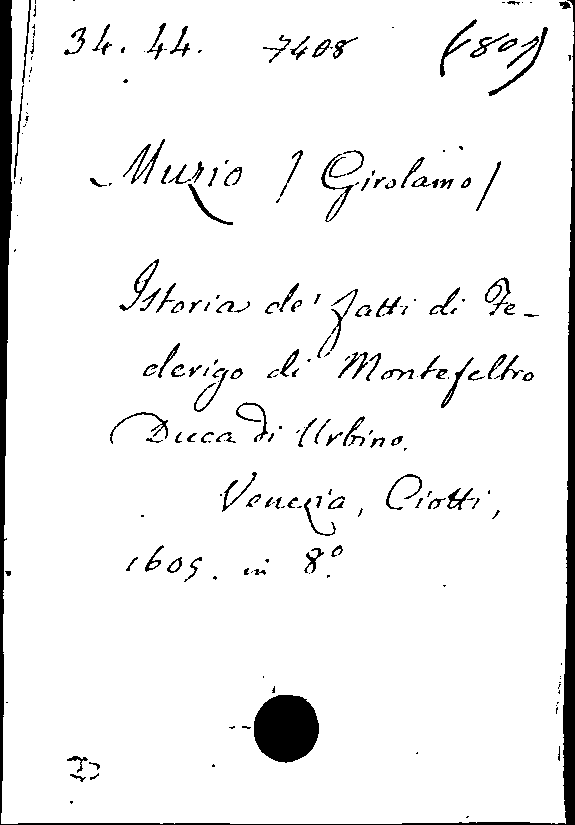 34. 44. 7408 (801)
Muzio / Girolamo /
Istoria de' fatti di Fe-
derigo di Montefeltro
Duca di Urbino.
Venezia, Ciotti,
1605. in 8.º